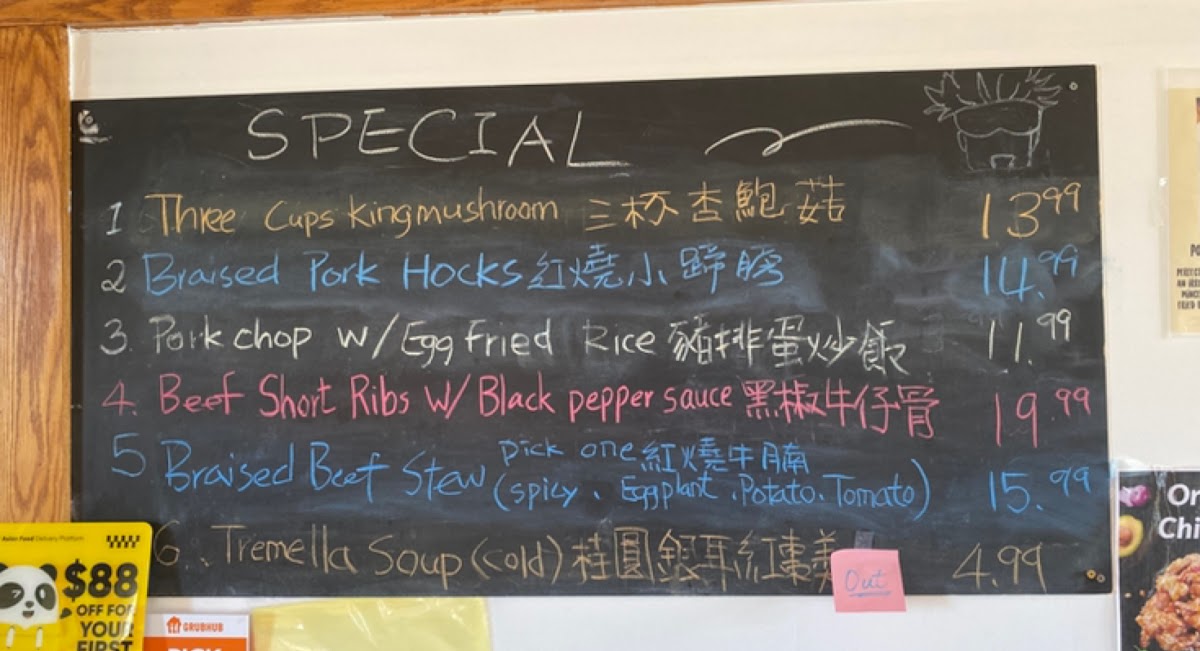 SPECIAL
1 Three Cups Kingmushroom 三杯杏鮑菇 13.99
2 Braised Pork Hocks 紅燒小蹄膀 14.99
3. Pork chop w/Egg Fried Rice 豬排蛋炒飯 11.99
4. Beef Short Ribs W/ Black pepper sauce 黑椒牛仔骨 19.99
5 Braised Beef Stew Pick one 紅燒牛腩 15.99
(spicy、Eggplant、Potato、Tomato)
6、Tremella Soup (cold) 桂圓銀耳紅棗羹 4.99
Out
Asian Food Delivery Platform
$88
OFF FOR
YOUR
FIRST
GRUBHUB
PICK
On
Chi